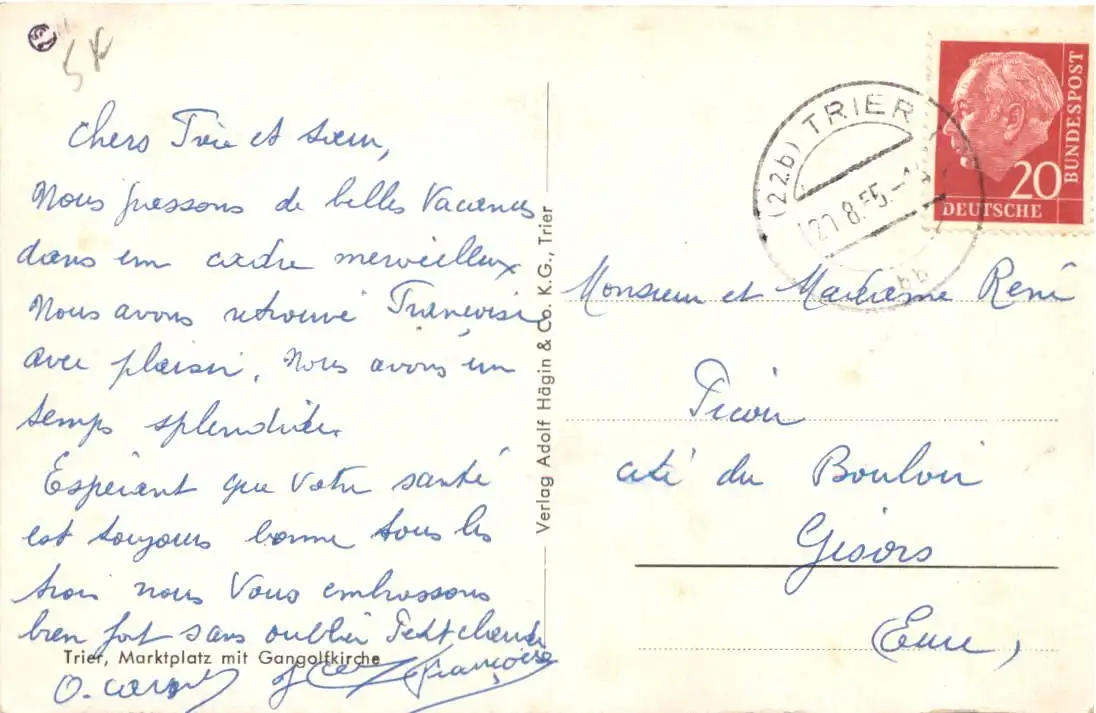 chers Frère et sœur,
Nous passons de belles Vacances
dans un cadre merveilleux
Nous avons retrouvé Françoise
avec plaisir. Nous avons un
temps splendide.
Espérant que Votre santé
est toujours bonne tous les
trois nous Vous embrassons
bien fort sans oublier
Trier, Marktplatz mit Gangolfkirche
Françoise
Verlag Adolf Hägin & Co. K.G., Trier
(22b) TRIER
8.55.
DEUTSCHE
BUNDESPOST
20
Monsieur et Madame René
cité du Bouloir
Gisors
(Eure)